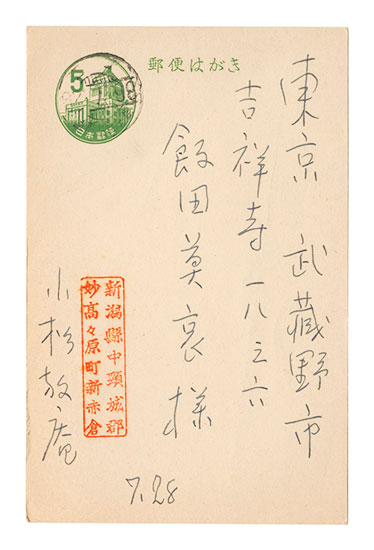 郵便はがき
5
日本郵便
東京 武蔵野市
吉祥寺 一八三六
飯田莫哀様
新潟縣中頸城郡
妙高々原町新赤倉
小松放庵
7.28